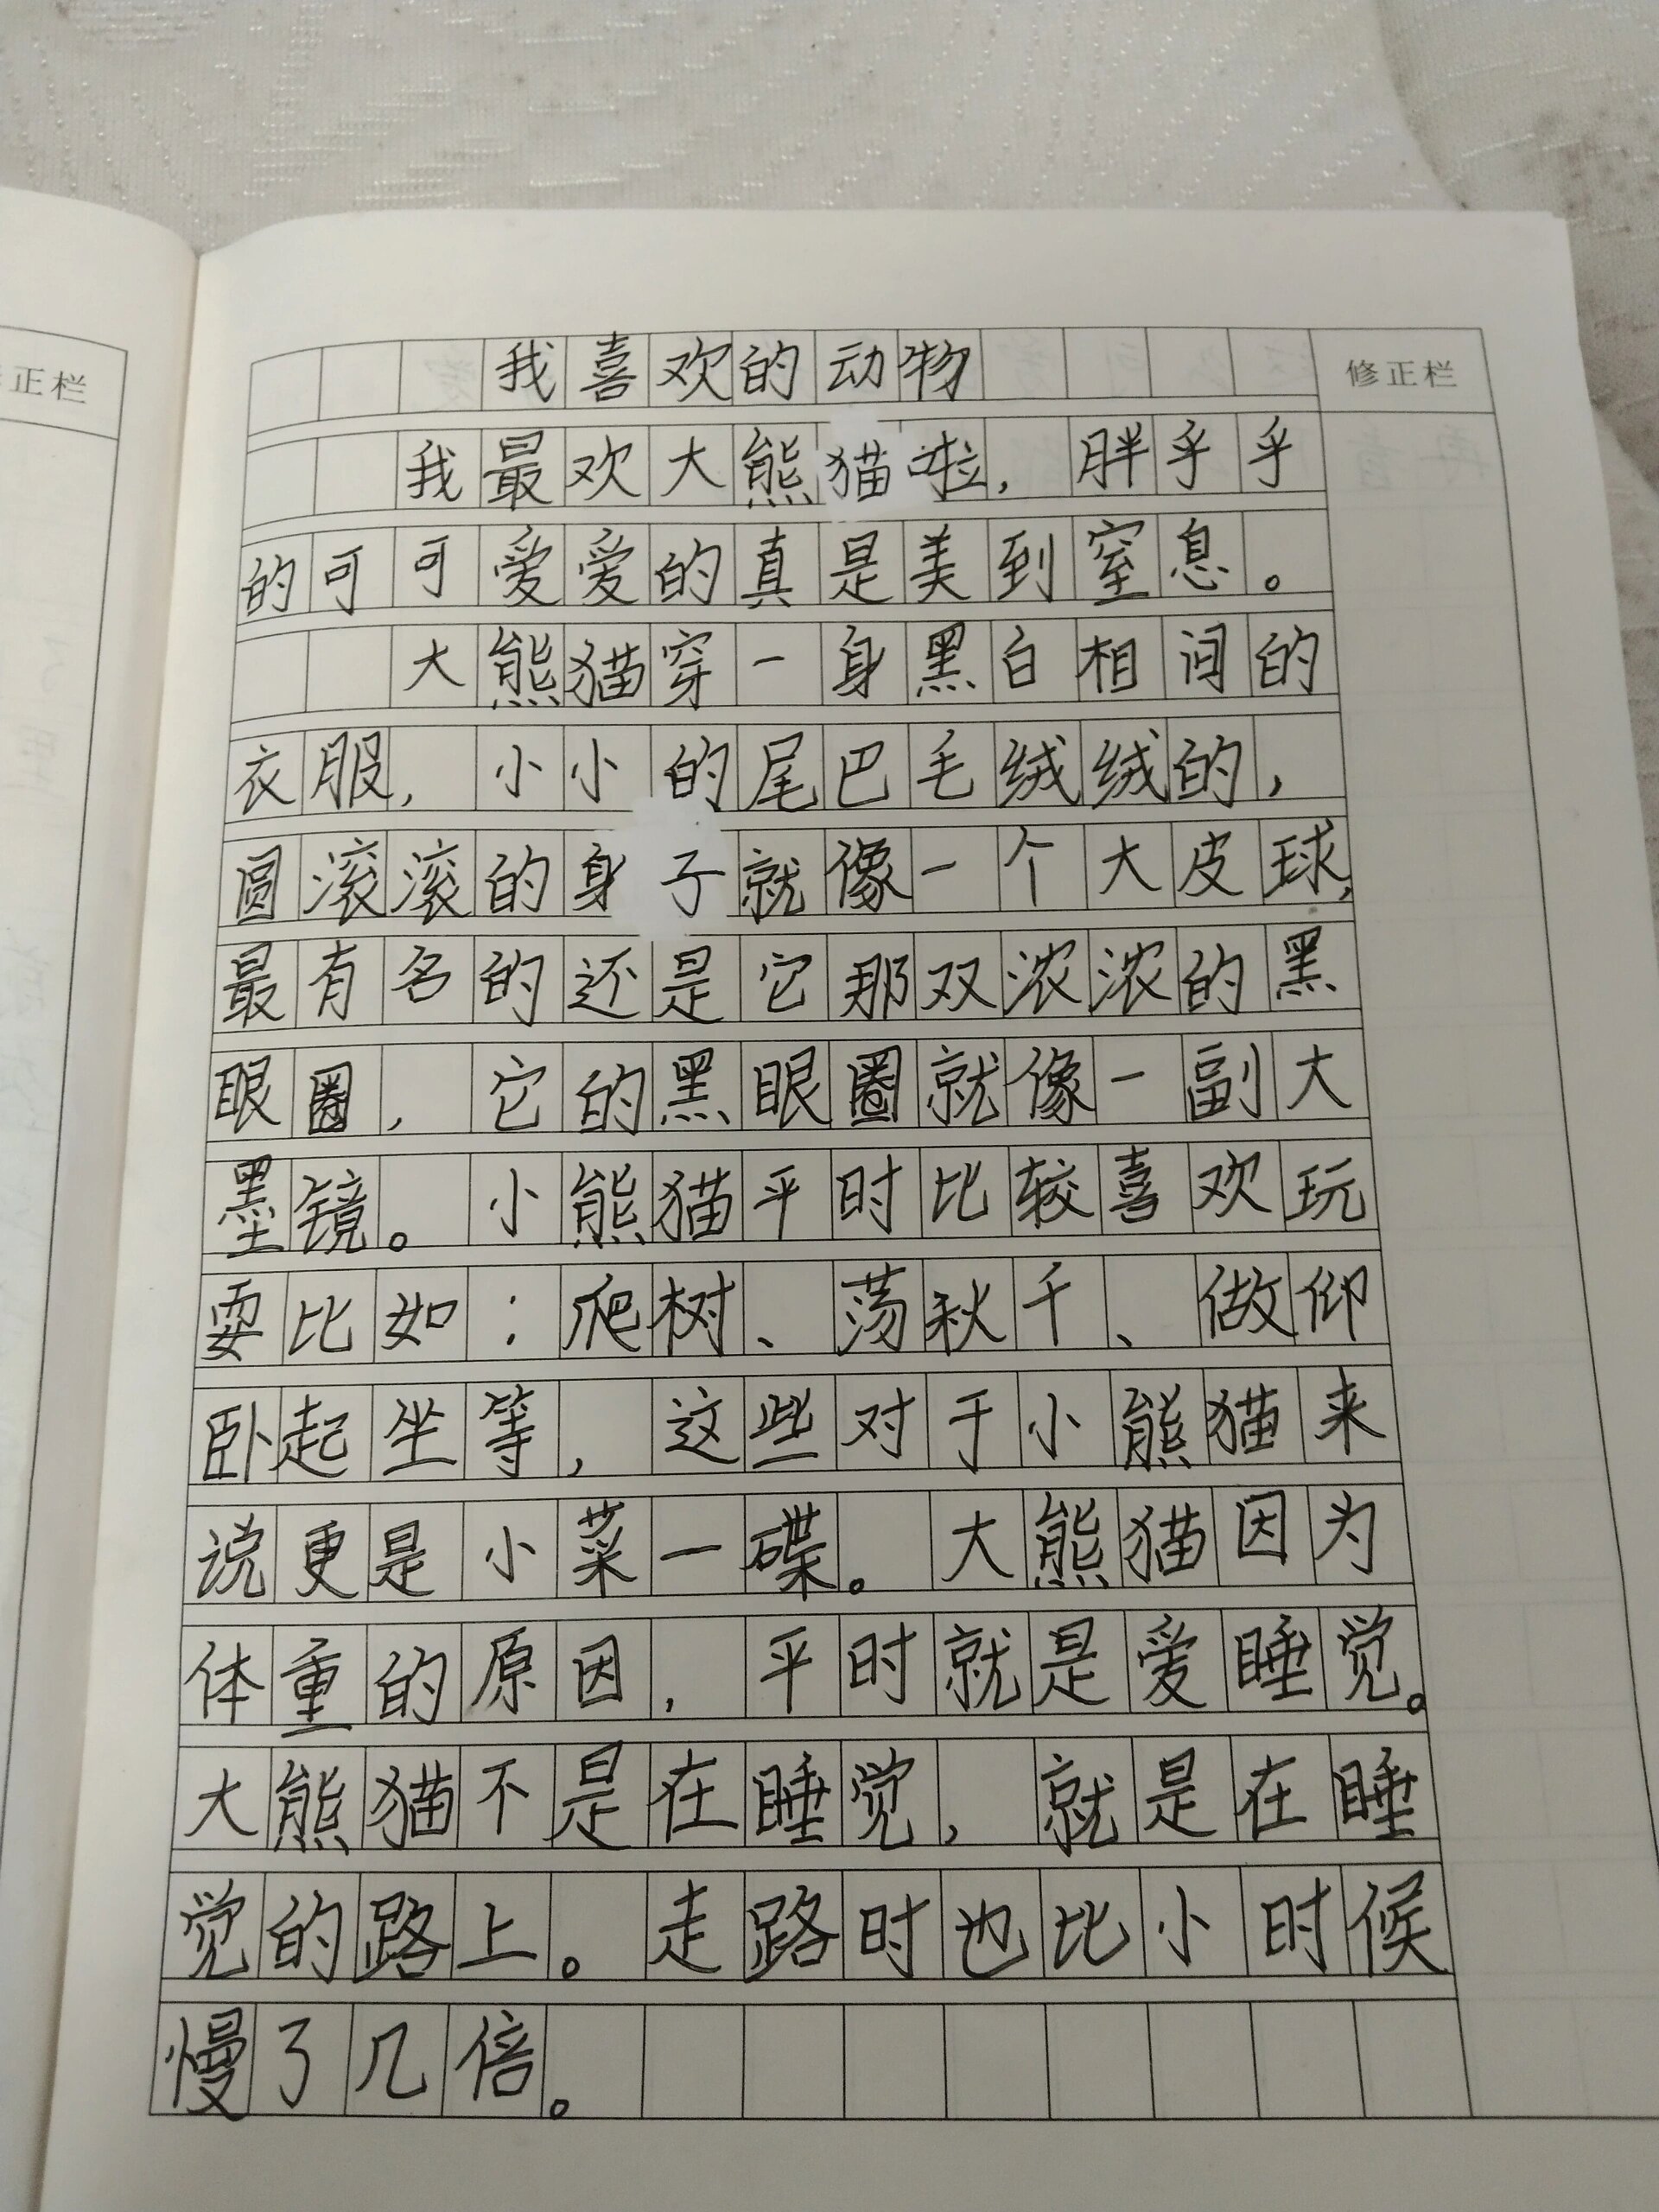 正栏
我喜欢的动物
修正栏
我最欢大熊猫啦，胖乎乎
的可可爱爱的真是美到窒息。
大熊猫穿一身黑白相间的
衣服，小小的尾巴毛绒绒的，
圆滚滚的身子就像一个大皮球，
最有名的还是它那双浓浓的黑
眼圈，它的黑眼圈就像一副大
墨镜。小熊猫平时比较喜欢玩
耍比如：爬树、荡秋千、做仰
卧起坐等，这些对于小熊猫来
说更是小菜一碟。大熊猫因为
体重的原因，平时就是爱睡觉。
大熊猫不是在睡觉，就是在睡
觉的路上。走路时也比小时候
慢了几倍。